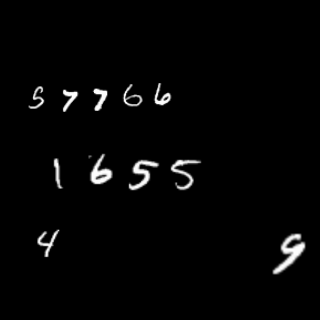 57766
1655
4 9